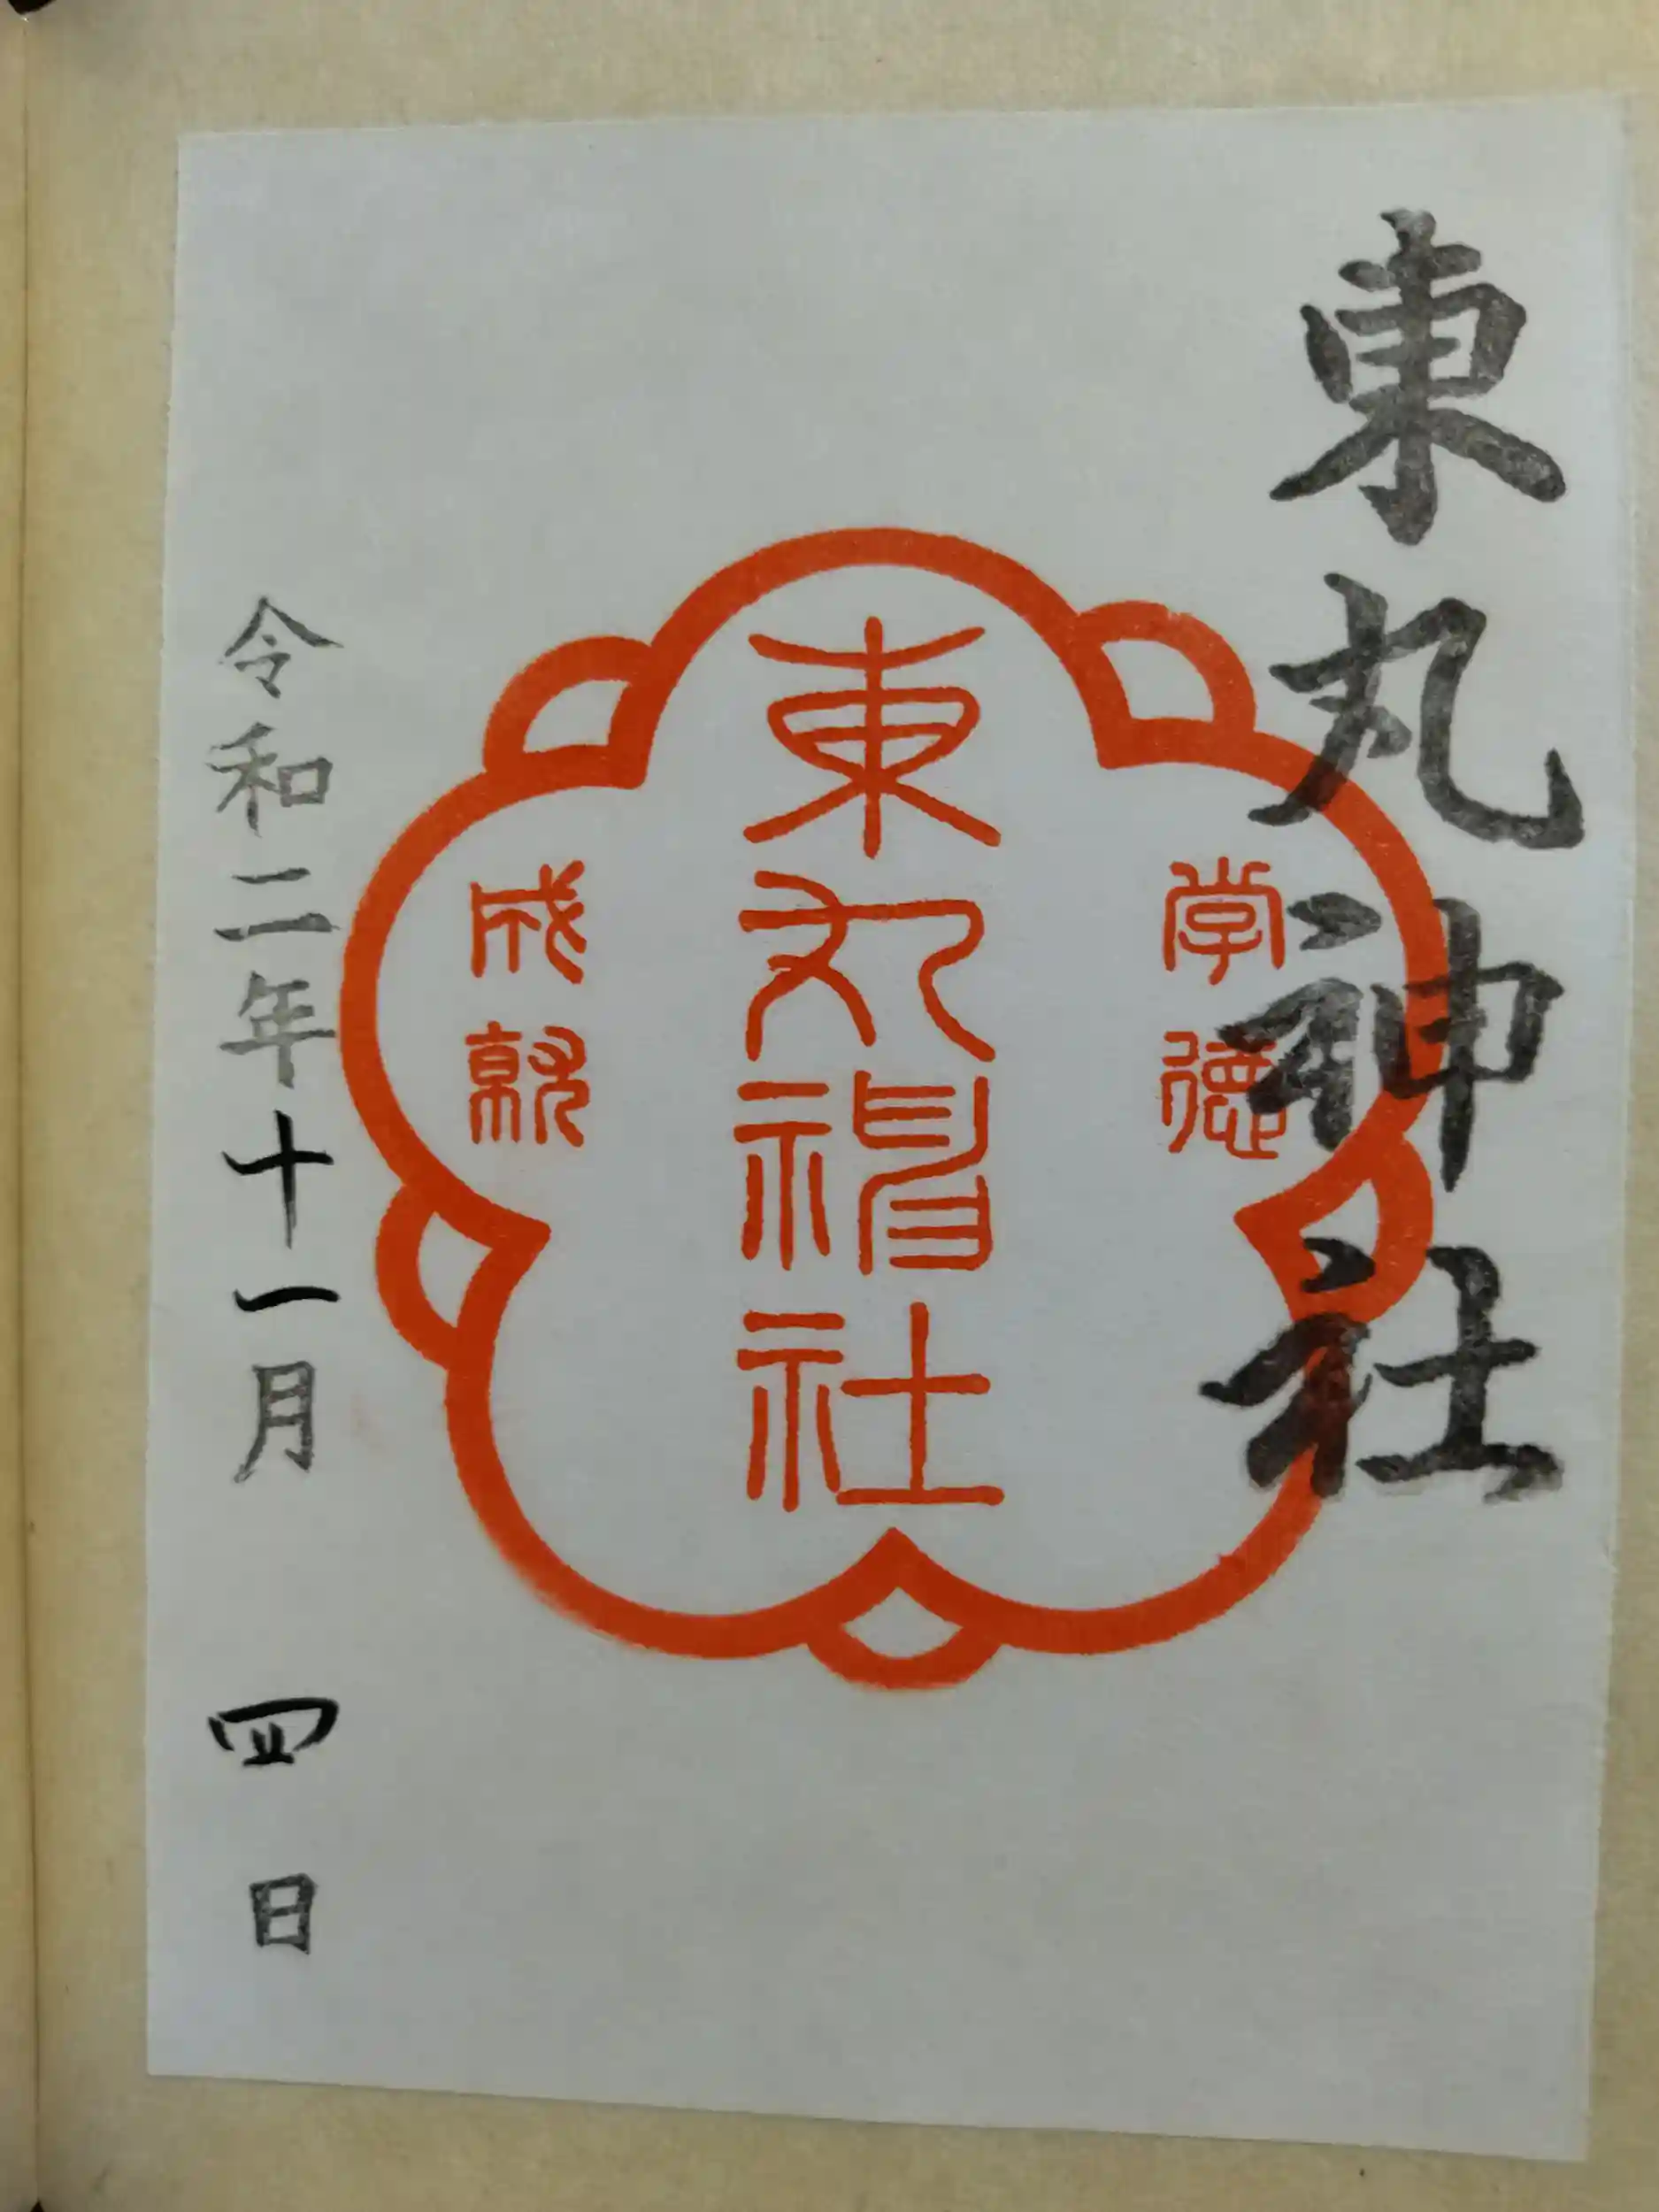 東丸神社
学德
東丸神社
成就
令和二年十一月 四 日